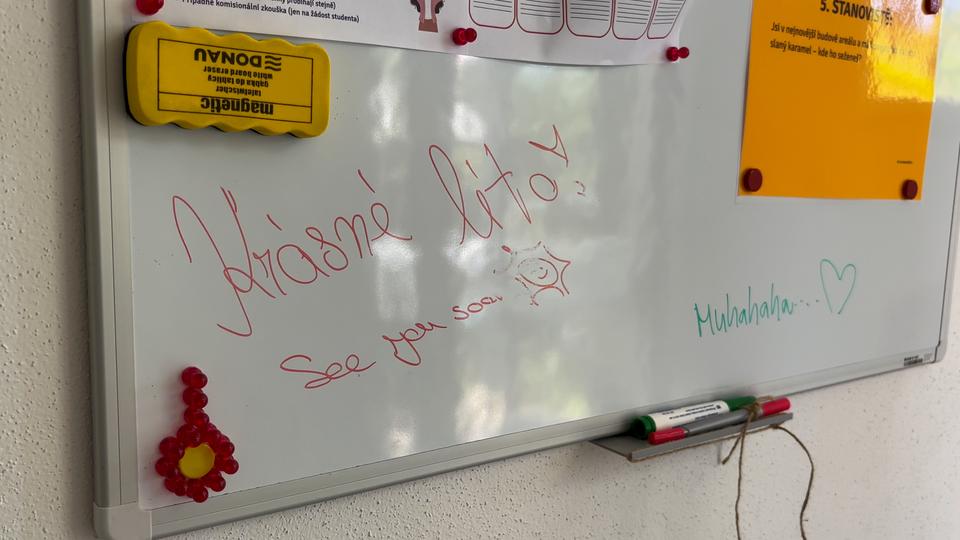 Případné komisionální zkouška (jen na žádost studenta)
5. STANOVIŠTĚ:
Jsi v nejnovější budově areálu a
slaný karamel – kde ho seženeš?
magnetic
tafelwischer
gąbka do tablicy
white board eraser
DONAU
Krásné léto!
See you soon
Muhahaha....